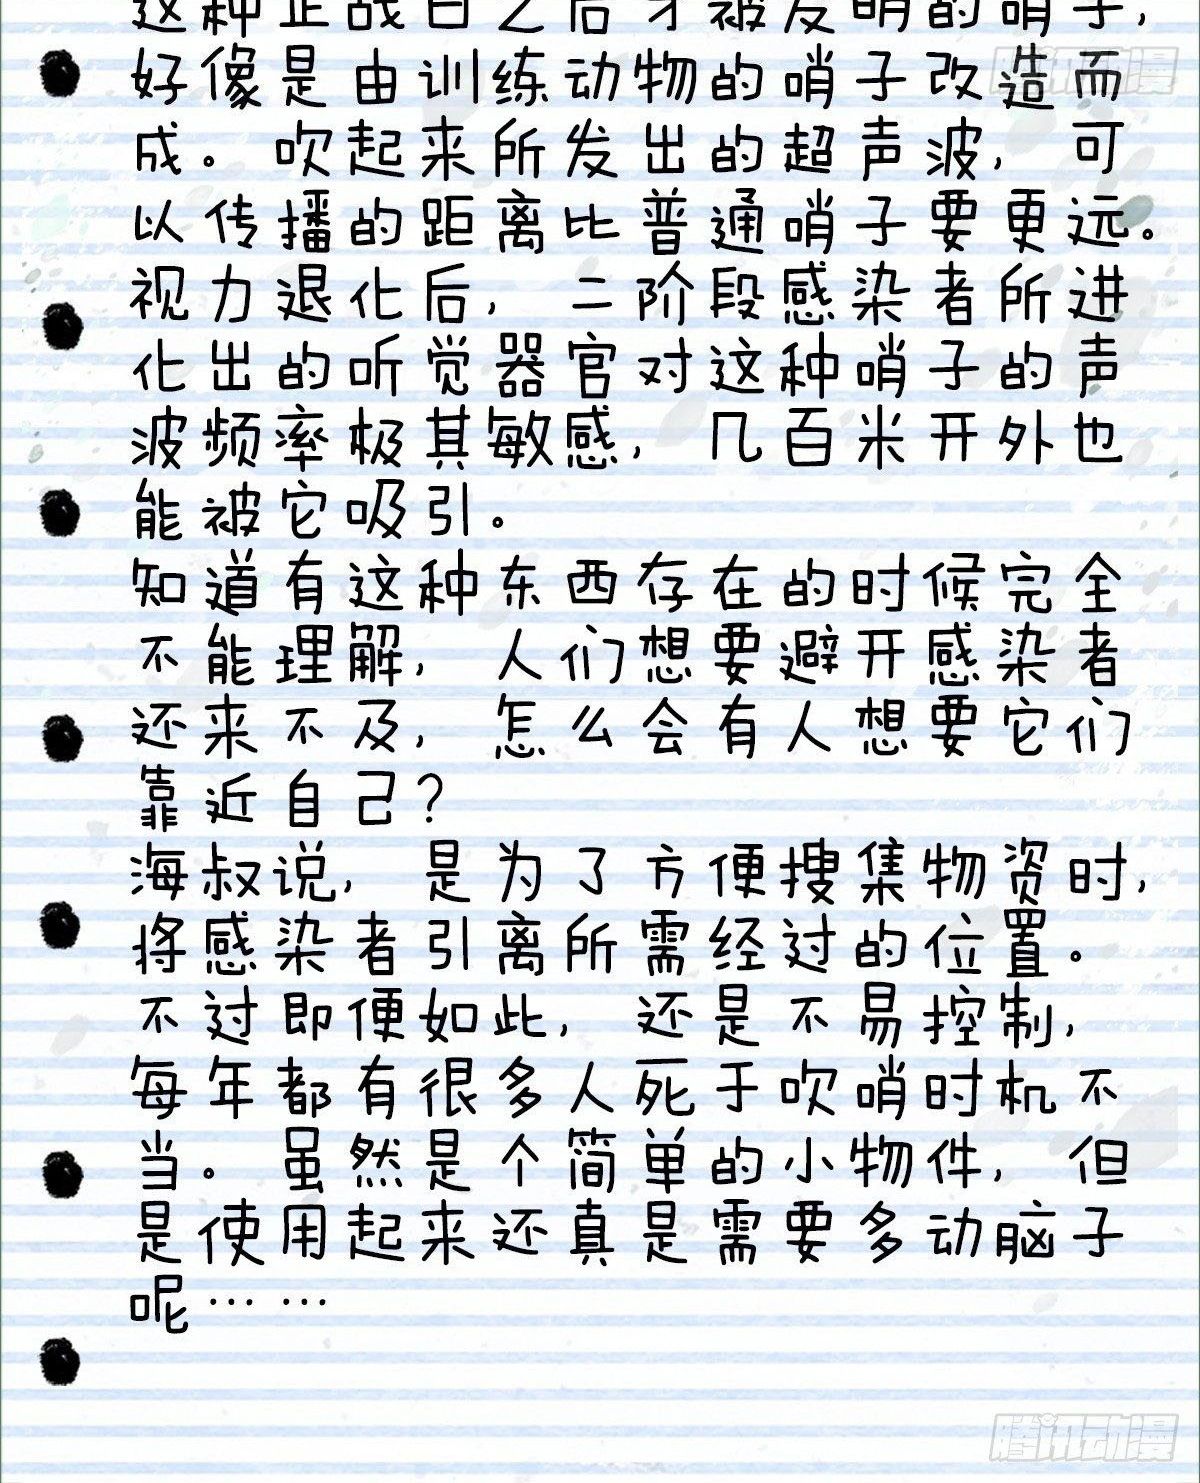 腾讯动漫
这种在战日之后才被发明的哨子,
好像是由训练动物的哨子改造而
成。吹起来所发出的超声波,可
以传播的距离比普通哨子要更远。
视力退化后,二阶段感染者所进
化出的听觉器官对这种哨子的声
波频率极其敏感,几百米开外也
能被它吸引。
知道有这种东西存在的时候完全
不能理解,人们想要避开感染者
还来不及,怎么会有人想要它们
靠近自己?
海叔说,是为了方便搜集物资时,
将感染者引离所需经过的位置。
不过即便如此,还是不易控制,
每年都有很多人死于吹哨时机不
当。虽然是个简单的小物件,但
是使用起来还真是需要多动脑子
呢……
腾讯动漫